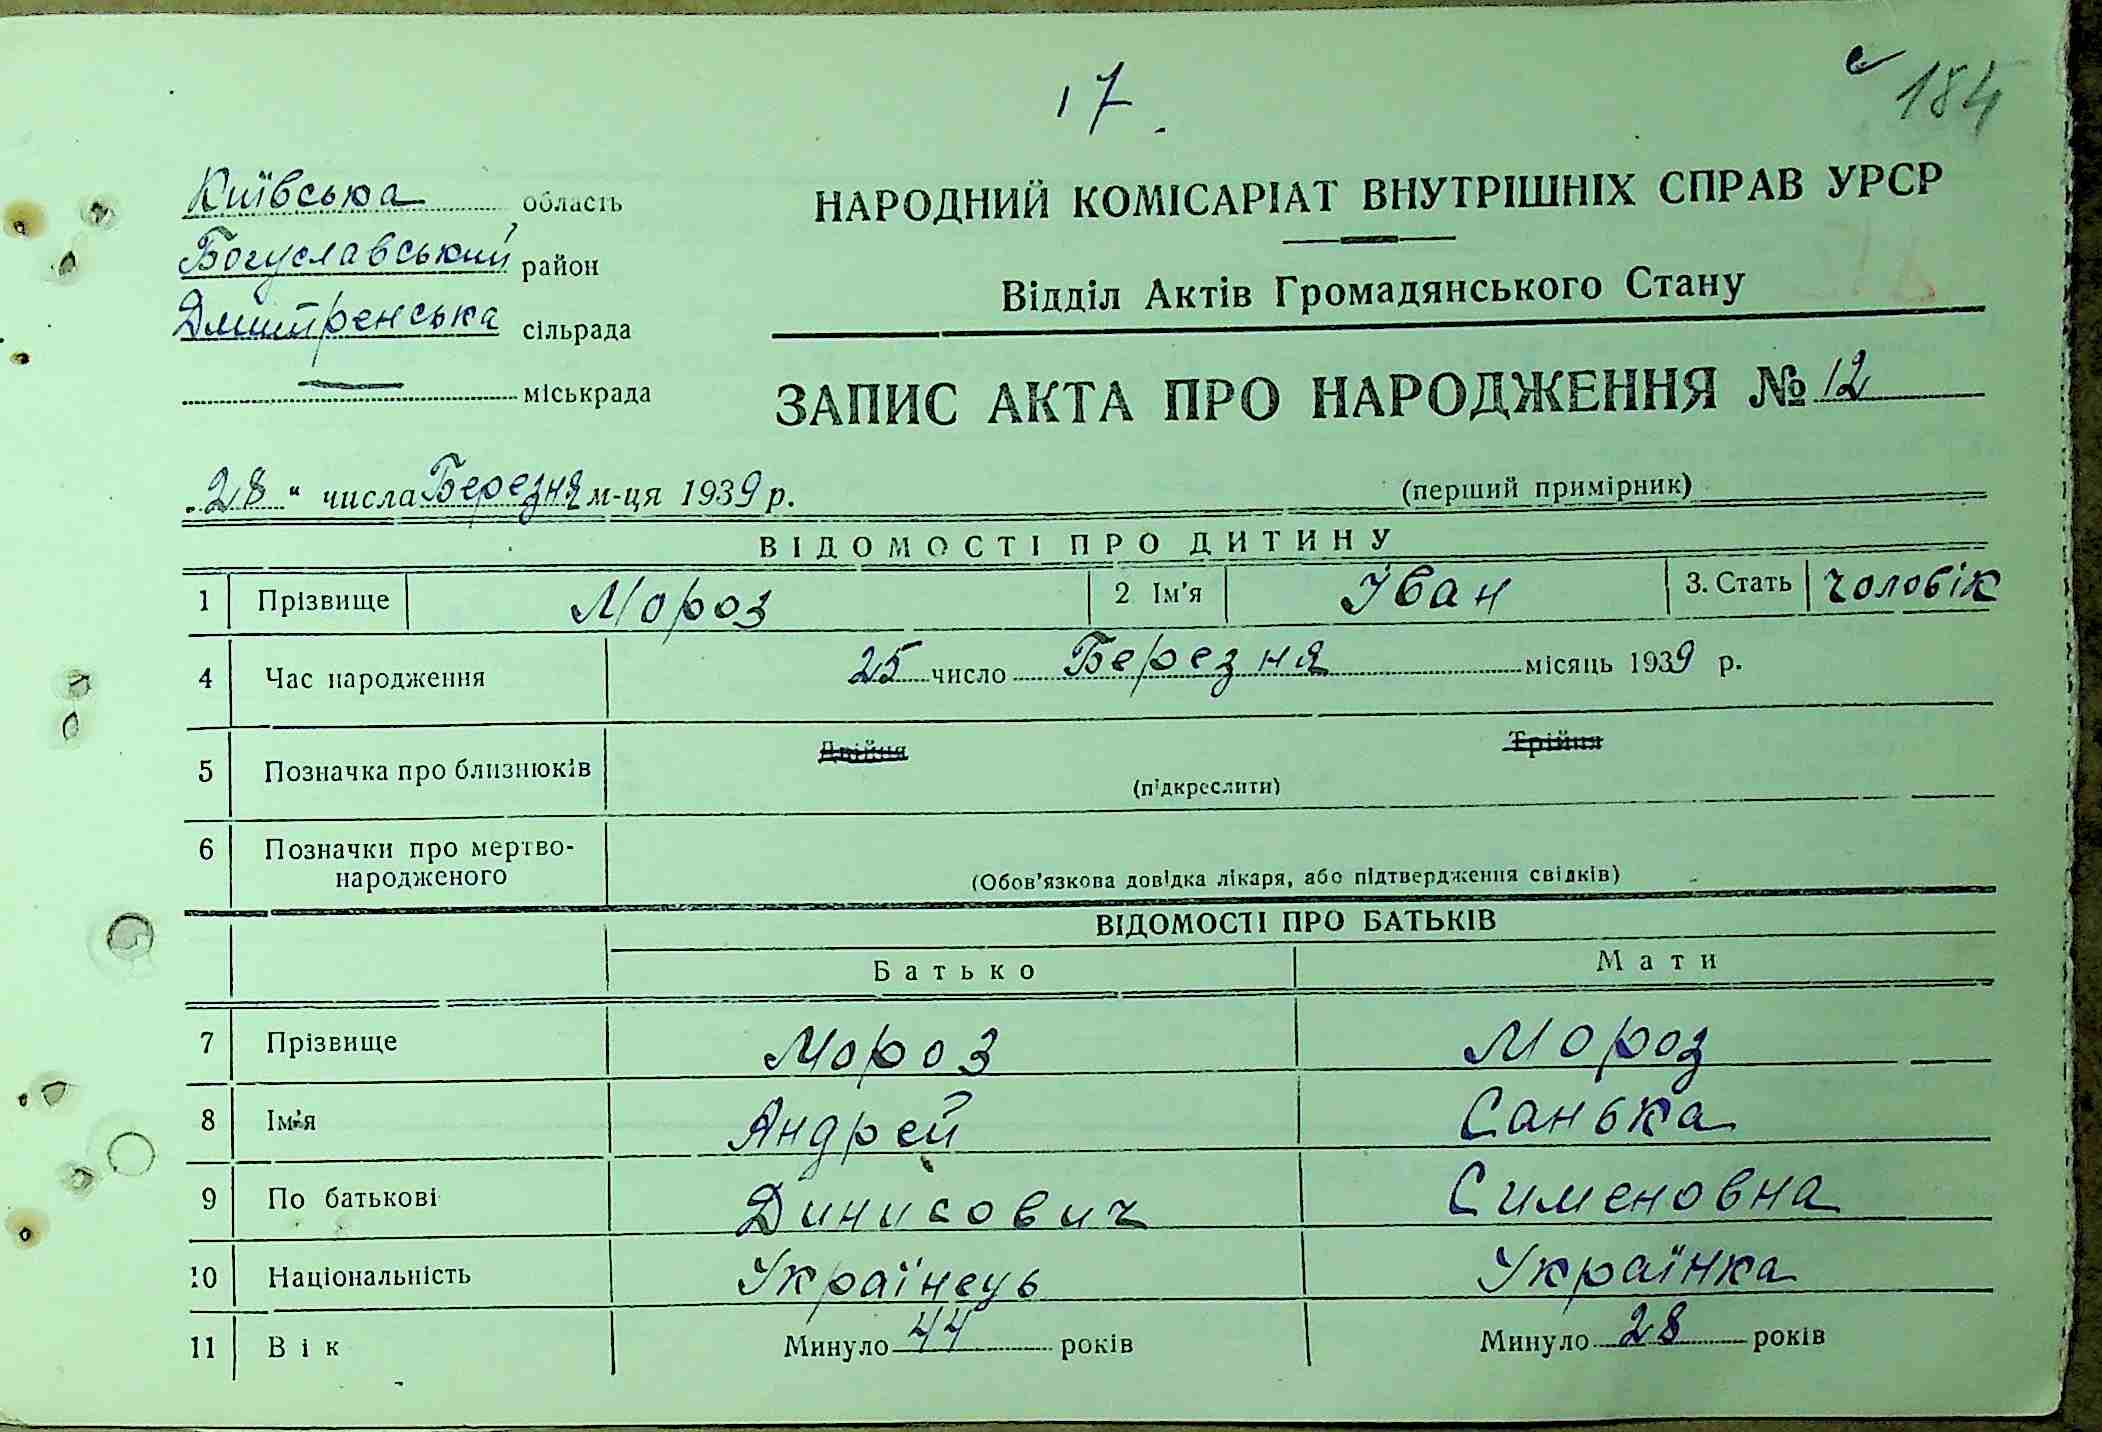 17.
184
Київська область
Богуславський район
Дмитренська сільрада
— міськрада
НАРОДНИЙ КОМІСАРІАТ ВНУТРІШНІХ СПРАВ УРСР
Відділ Актів Громадянського Стану
ЗАПИС АКТА ПРО НАРОДЖЕННЯ № 12
„28“ числа Березня м-ця 1939 р.
(перший примірник)
ВІДОМОСТІ ПРО ДИТИНУ
1 Прізвище Мороз 2 Ім'я Іван 3. Стать чоловік
4 Час народження 25 число Березня місяць 1939 р.
5 Позначка про близнюків Двійня Трійня
(підкреслити)
6 Позначки про мертво-
народженого
(Обов'язкова довідка лікаря, або підтвердження свідків)
ВІДОМОСТІ ПРО БАТЬКІВ
Батько Мати
7 Прізвище Мороз Мороз
8 Ім'я Андрей Санька
9 По батькові Динисович Сименовна
10 Національність Українець Українка
11 Вік Минуло 44 років Минуло 28 років